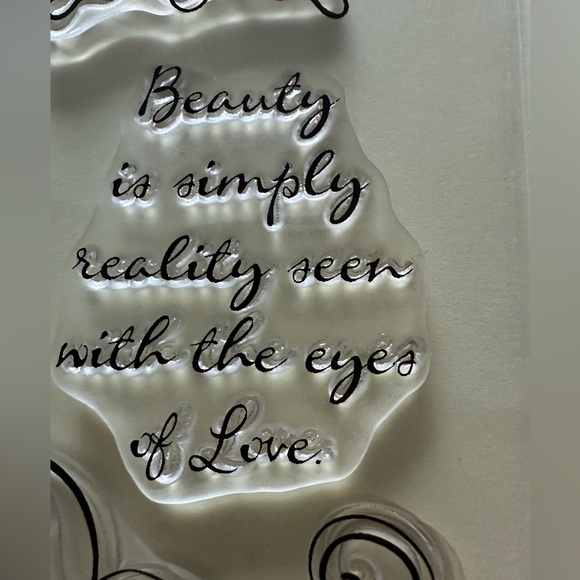 Beauty
is simply
reality seen
with the eyes
of Love.